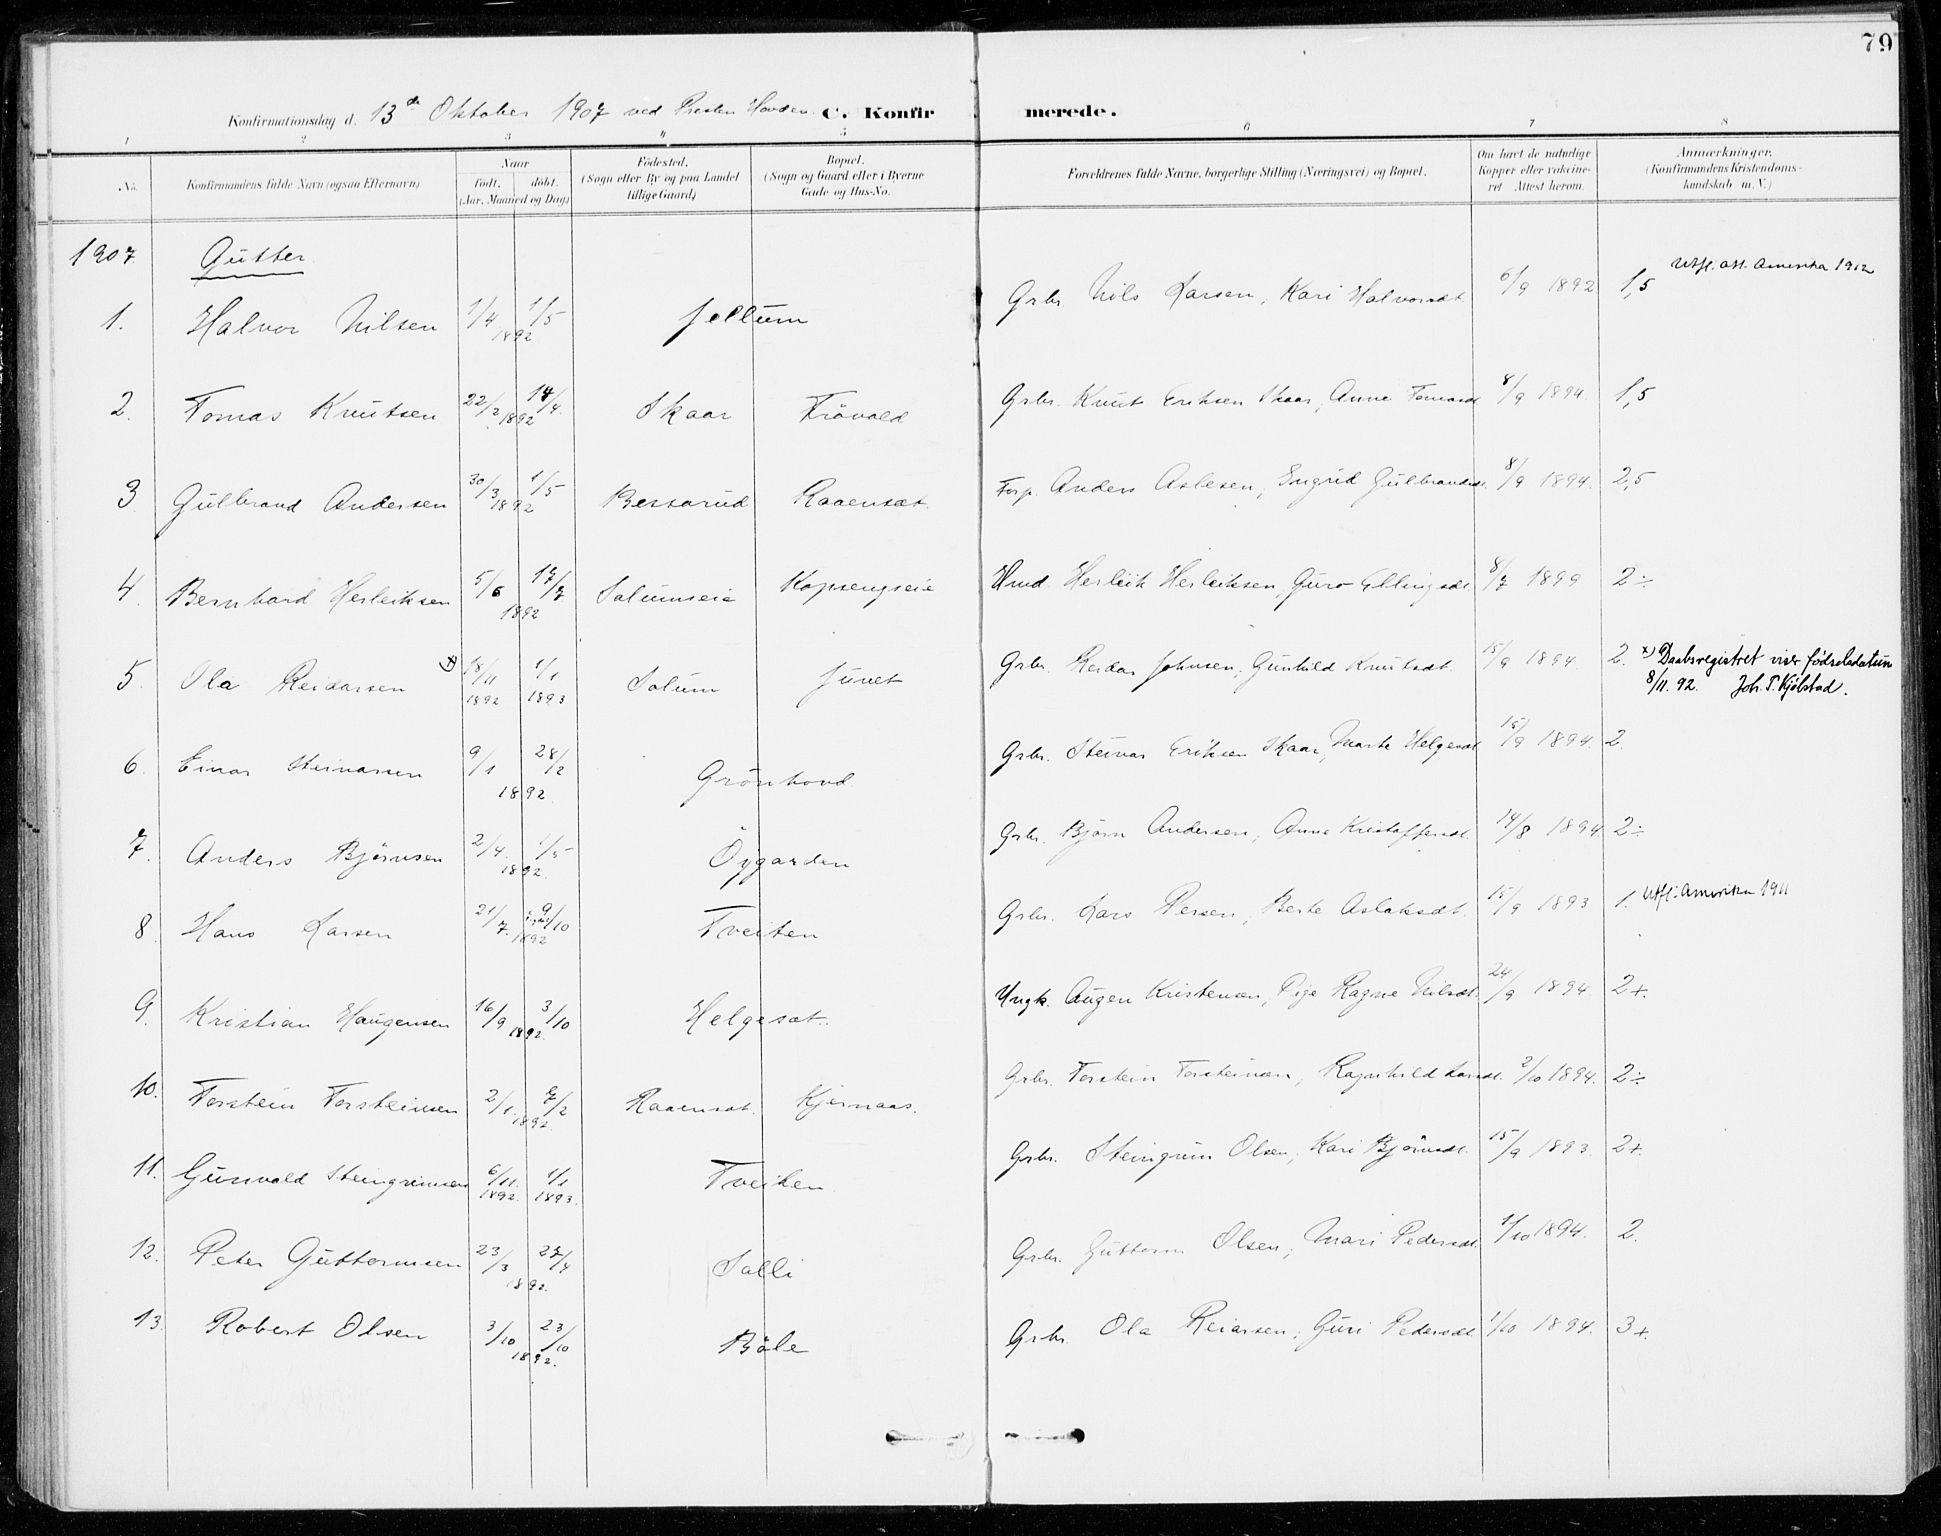 79
Konfirmationsdag d. 13de Oktober 1907 ved Presten Hovden. C. Konfirmerede.
1 2 3 4 5 6 7 8
No. Konfirmandens fulde Navn (ogsaa Efternavn) Naar født. døbt. (Aar, Maaned og Dag) Fødested. (Sogn eller By og paa Landet tillige Gaard) Bopæl. (Sogn og Gaard eller i Byerne Gade og Hus-No. Forældrenes fulde Navne, borgerlige Stilling (Næringsvei) og Bopæl. Om havt de naturlige Kopper eller vaccineret Attest herom. Anmærkninger. (Konfirmandens Kristendomskundskab m. V.)
1907. Gutter
1. Halvor Nilsen 1/4 1/5 1892 Jellum Grbr. Nils Larsen, Kari Halvorsdt. 6/9 1892 1,5 Utfl. att. Amerika 1912
2. Tomas Knutsen 22/2 18/4. 1892 Skaar Trövold Grbr. Knut Eriksen Skaar, Anne Tomasdt. 8/9 1894. 1,5
3 Gulbrand Andersen 30/3 1/5 1892 Bessarud Raaensæt. Forp. Anders Aslesen, Ingrid Gulbrandsdt. 8/9 1894. 2,5
4. Bernhard Herleiksen 5/6 17/7 1892 Solumseie Kopsengseie Hmd Herleik Herleiksen, Guro Ellingsdt. 8/7 1899 2÷
5. Ola Reidarsen x) 18/11 1892 1/1 1893 Solum Juvet Grbr. Reidar Johnsen, Gunhild Knutsdt. 15/9 1894 2. x) Daabsregistret viser födselsdatum 8/11. 92. Joh. T. Kjölstad.
6. Einar Steinarsen 9/1 28/2 1892. Grönhovd. Grbr. Steinar Eriksen Skaar, Marte Helgesdt. 15/9 1894. 2.
7. Anders Björnsen 2/4. 1/5 1892. Öygarden Grbr. Björn Andersen, Anne Kristoffersdt. 14/8 1894 2÷
8. Hans Larsen 21/7. 9/10 1892 Tveiten Grbr. Lars Persen, Berte Aslaksdt. 15/9 1893 1. Utfl. Amerika 1911
9. Kristian Haugensen 16/9 3/10 1892. Helgesæt. Ungk. Augen Kristensen, Pige Ragne Nilsdt. 24/9 1894 2+.
10. Torstein Torsteinsen 2/1. 7/2 1892. Raaensæt. Kjernaas. Grbr. Torstein Torsteinsen, Ragnhild Larsdt. 2/10 1894. 2÷
11. Gunvald Steingrimsen 6/11. 1892. 1/1 1893. Tveiten Grbr. Steingrim Olsen, Kari Björnsdt. 15/9 1893. 2+.
12. Peter Guttormsen 23/3 27/4 1892. Salli Grbr. Guttorm Olsen, Mari Pedersdt. 1/10 1894. 2.
13. Robert Olsen 3/10 23/10 1892. Böle Grbr. Ola Reiarsen, Guri Pedersdt. 1/10 1894. 3+.